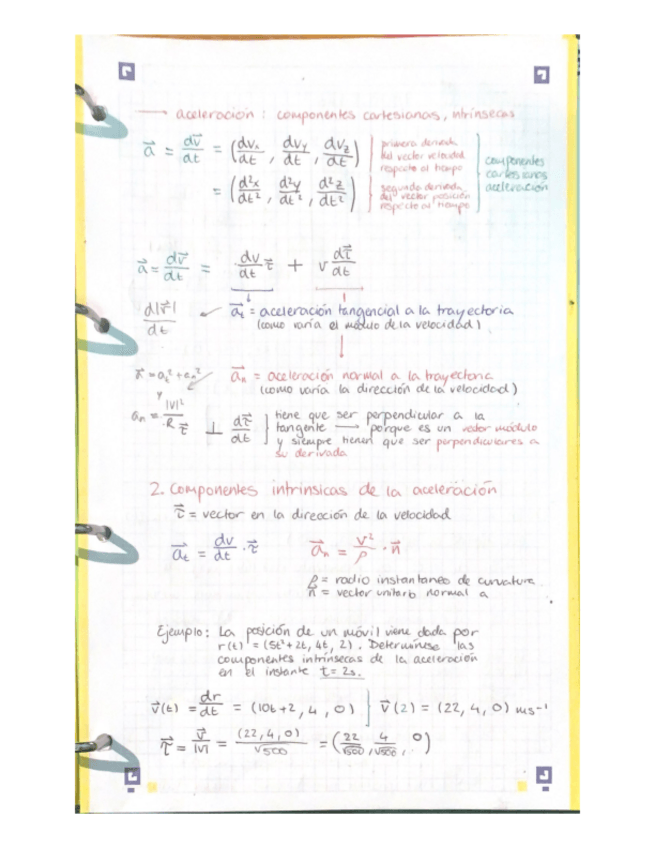 → aceleración : componentes cartesianas, intrínsecas
a⃗ = dv⃗/dt = (dvx/dt , dvy/dt , dvz/dt) primera derivada del vector velocidad respecto al tiempo
= (d²x/dt² , d²y/dt² , d²z/dt²) segunda derivada del vector posición respecto al tiempo
componentes cartesianas aceleración
a⃗ = dv⃗/dt = dv/dt τ⃗ + v dτ⃗/dt
d|v⃗|/dt ← a⃗t = aceleración tangencial a la trayectoria
(como varía el módulo de la velocidad)
a⃗n = aceleración normal a la trayectoria
(como varía la dirección de la velocidad)
y
an = |v|²/R τ⃗ ⊥ dτ⃗/dt
tiene que ser perpendicular a la
tangente → porque es un vector módulo
y siempre tienen que ser perpendiculares a
su derivada
2. Componentes intrínsicas de la aceleración
τ⃗ = vector en la dirección de la velocidad
a⃗t = dv/dt · τ⃗ a⃗n = v²/ρ · n⃗
ρ = radio instantaneo de curvatura
n⃗ = vector unitario normal a
Ejemplo: La posición de un móvil viene dada por
r(t) = (5t²+2t, 4t, 2). Determínese las
componentes intrínsecas de la aceleración
en el instante t=2s.
v⃗(t) = dr/dt = (10t+2, 4, 0) v⃗(2) = (22, 4, 0) ms⁻¹
τ⃗ = v⃗/|v| = (22,4,0)/√500 = (22/√500, 4/√500, 0)